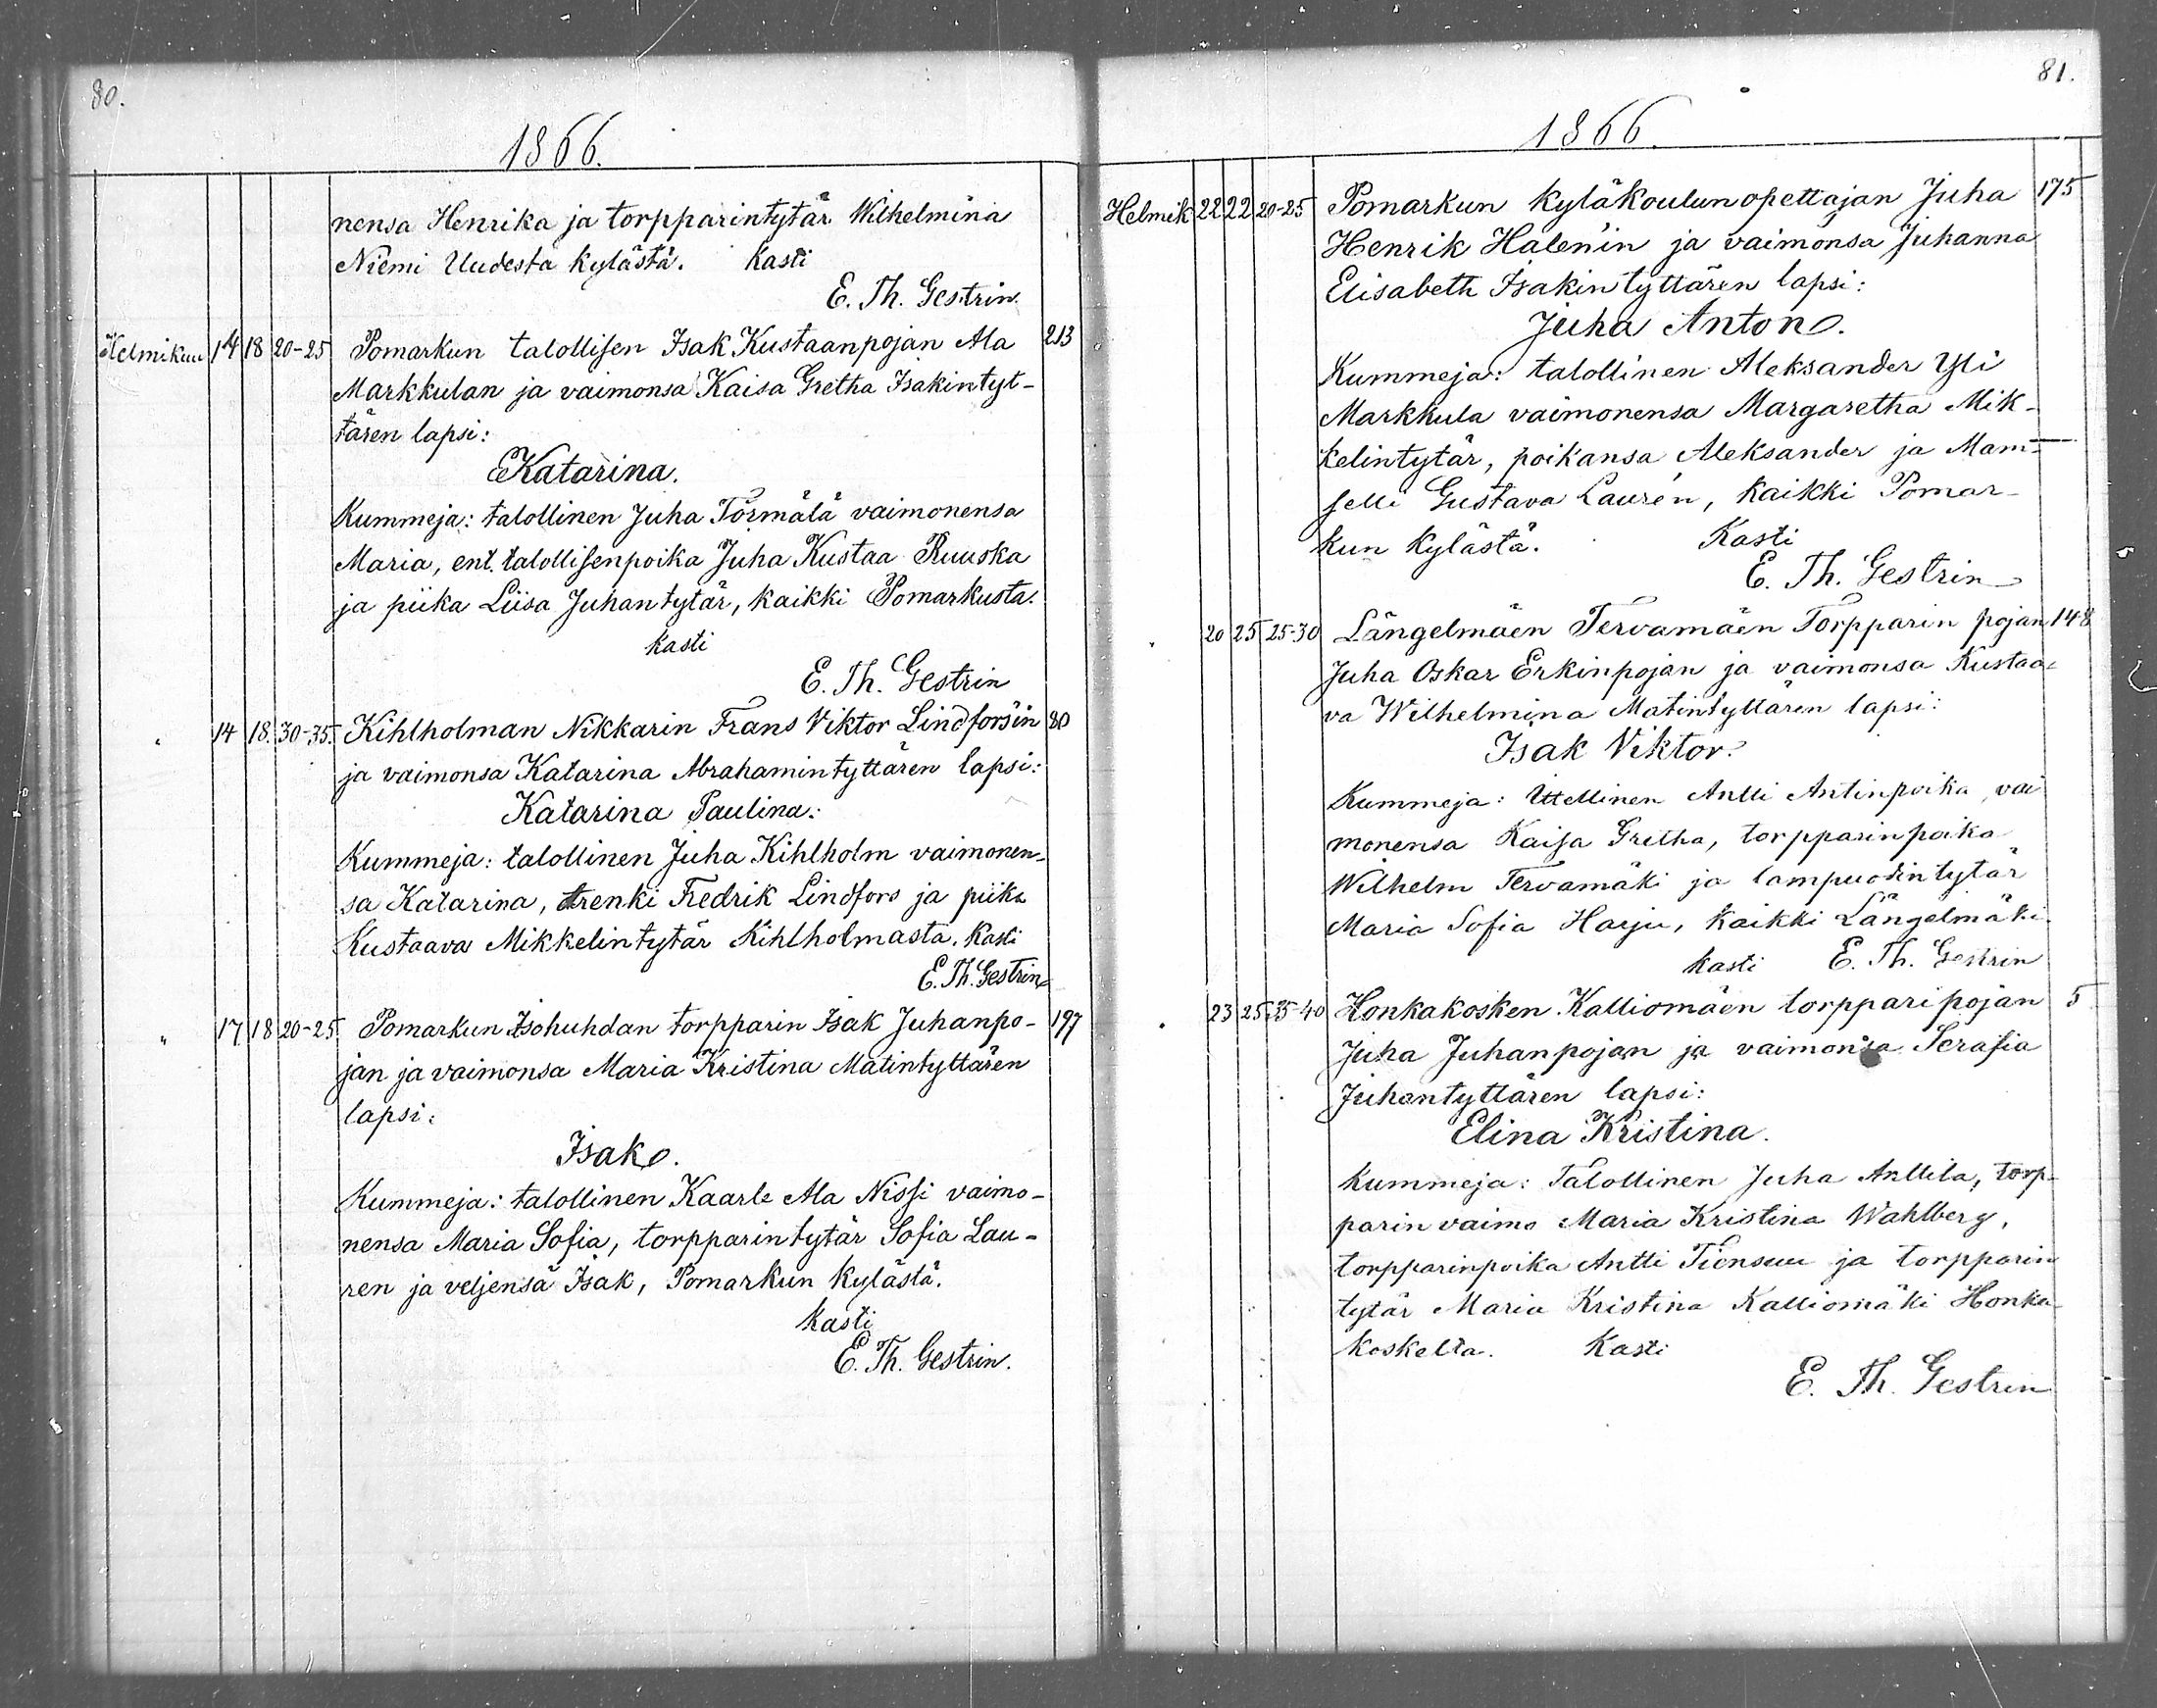 80.
1866.
nensa Henrika ja torpparintytär Wilhelmina
Niemi Uudesta kylästä. Kasti
E. Th. Gestrin.
Helmikuu 14 18 20-25 Pomarkun talollisen Isak Kustaanpojan Ala 213
Markkulan ja vaimonsa Kaisa Gretha Isakintyt-
tären lapsi:
Katarina.
Kummeja: talollinen Juha Törmälä vaimonensa
Maria, ent. talollisenpoika Juha Kustaa Ruuska
ja piika Liisa Juhantytär, kaikki Pomarkusta.
kasti
E. Th. Gestrin
" 14 18. 30-35. Kihlholman Nikkarin Frans Viktor Lindfors'in 80
ja vaimonsa Katarina Abrahamintyttären lapsi:
Katarina Paulina.
Kummeja: talollinen Juha Kihlholm vaimonen-
sa Katarina, trenki Fredrik Lindfors ja piika
Kustaava Mikkelintytär Kihlholmasta. Kasti
E. Th. Gestrin
" 17 18 20-25 Pomarkun Isohuhdan torpparin Isak Juhanpo- 197
jan ja vaimonsa Maria Kristina Matintyttären
lapsi:
Isak.
Kummeja: talollinen Kaarle Ala Nissi vaimo-
nensa Maria Sofia, torpparintytär Sofia Lau-
ren ja veljensä Isak, Pomarkun kylästä.
kasti
E. Th. Gestrin.
81.
1866.
Helmik 22 22 20-25 Pomarkun kyläkoulunopettajan Juha 175
Henrik Halen'in ja vaimonsa Juhanna
Elisabeth Isakintyttären lapsi:
Juha Anton.
Kummeja: talollinen Aleksander Yli
Markkula vaimonensa Margaretha Mik-
kelintytär, poikansa Aleksander ja Mam-
selli Gustava Laurén, kaikki Pomar-
kun kylästä. Kasti
E. Th. Gestrin
" 20 25 25-30 Längelmäen Tervamäen Torpparin pojan 148
Juha Oskar Erkinpojan ja vaimonsa Kustaa-
va Wilhelmina Matintyttären lapsi:
Isak Viktor.
Kummeja: Itellinen Antti Antinpoika, vai
monensa Kaisa Gretha, torpparinpoika
Wilhelm Tervamäki ja lampuodintytär
Maria Sofia Harju, kaikki Längelmäki.
kasti E. Th. Gestrin
" 23 25 35-40 Honkakosken Kalliomäen torpparipojan 5
Juha Juhanpojan ja vaimonsa Serafia
Juhantyttären lapsi:
Elina Kristina.
Kummeja: Talollinen Juha Anttila, torp-
parin vaimo Maria Kristina Wahlberg,
torpparinpoika Antti Tiensuu ja torpparin
tytär Maria Kristina Kalliomäki Honka-
koskelta. Kasti
E. Th. Gestrin